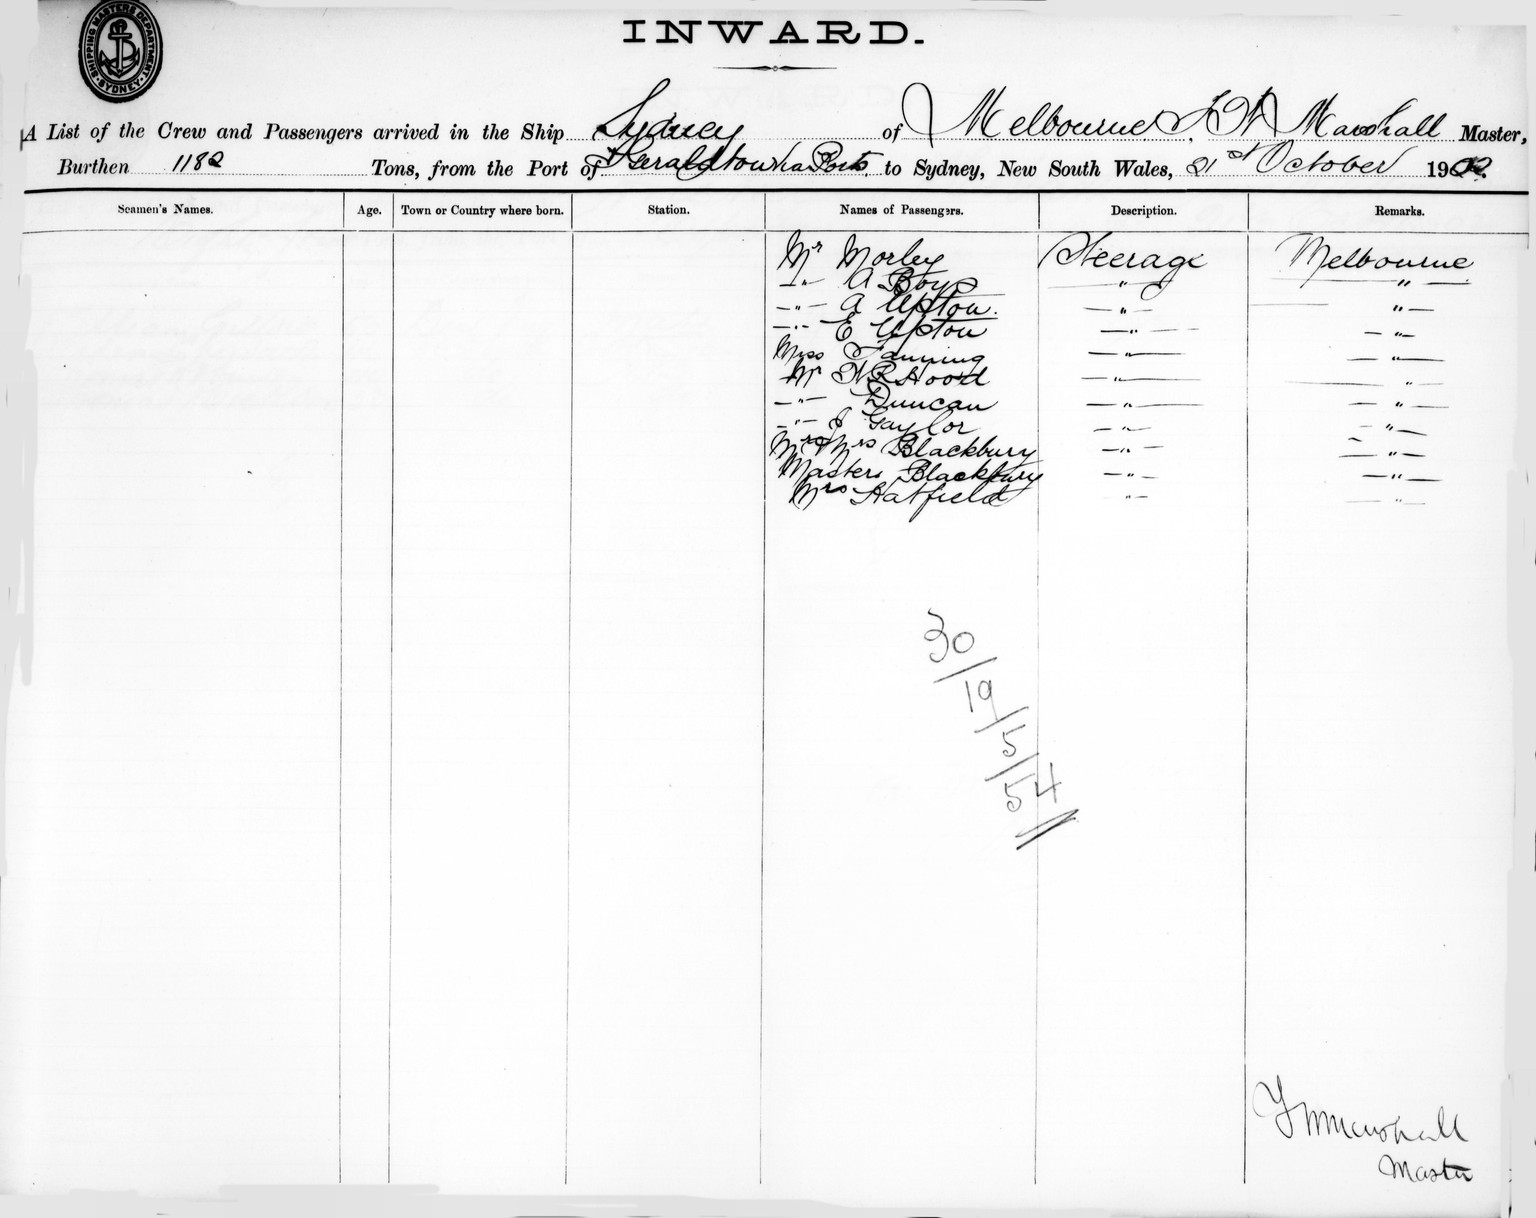 SHIPPING MASTERS DEPARTMENT SYDNEY
INWARD.
A List of the Crew and Passengers arrived in the Ship Sydney of Melbourne, Marshall Master,
Burthen 1182 Tons, from the Port of Geraldton Ports to Sydney, New South Wales, 21st October 190
Seamen's Names. Age. Town or Country where born. Station. Names of Passengers. Description. Remarks.
Mr Morley Steerage Melbourne
-"- A Boys " "
-"- A Upton. -"- "-
-"- E Upton -"- -"-
Miss Tanning -"- -"-
Mr Hood -"- "
-"- Duncan -"- -"-
-"- J Gaylor -"- -"-
Mr & Mrs Blackbury -"- -"-
Masters Blackbury -"- -"-
Mrs Hatfield -"- -"-
30/19/5/54
Marshall
Master